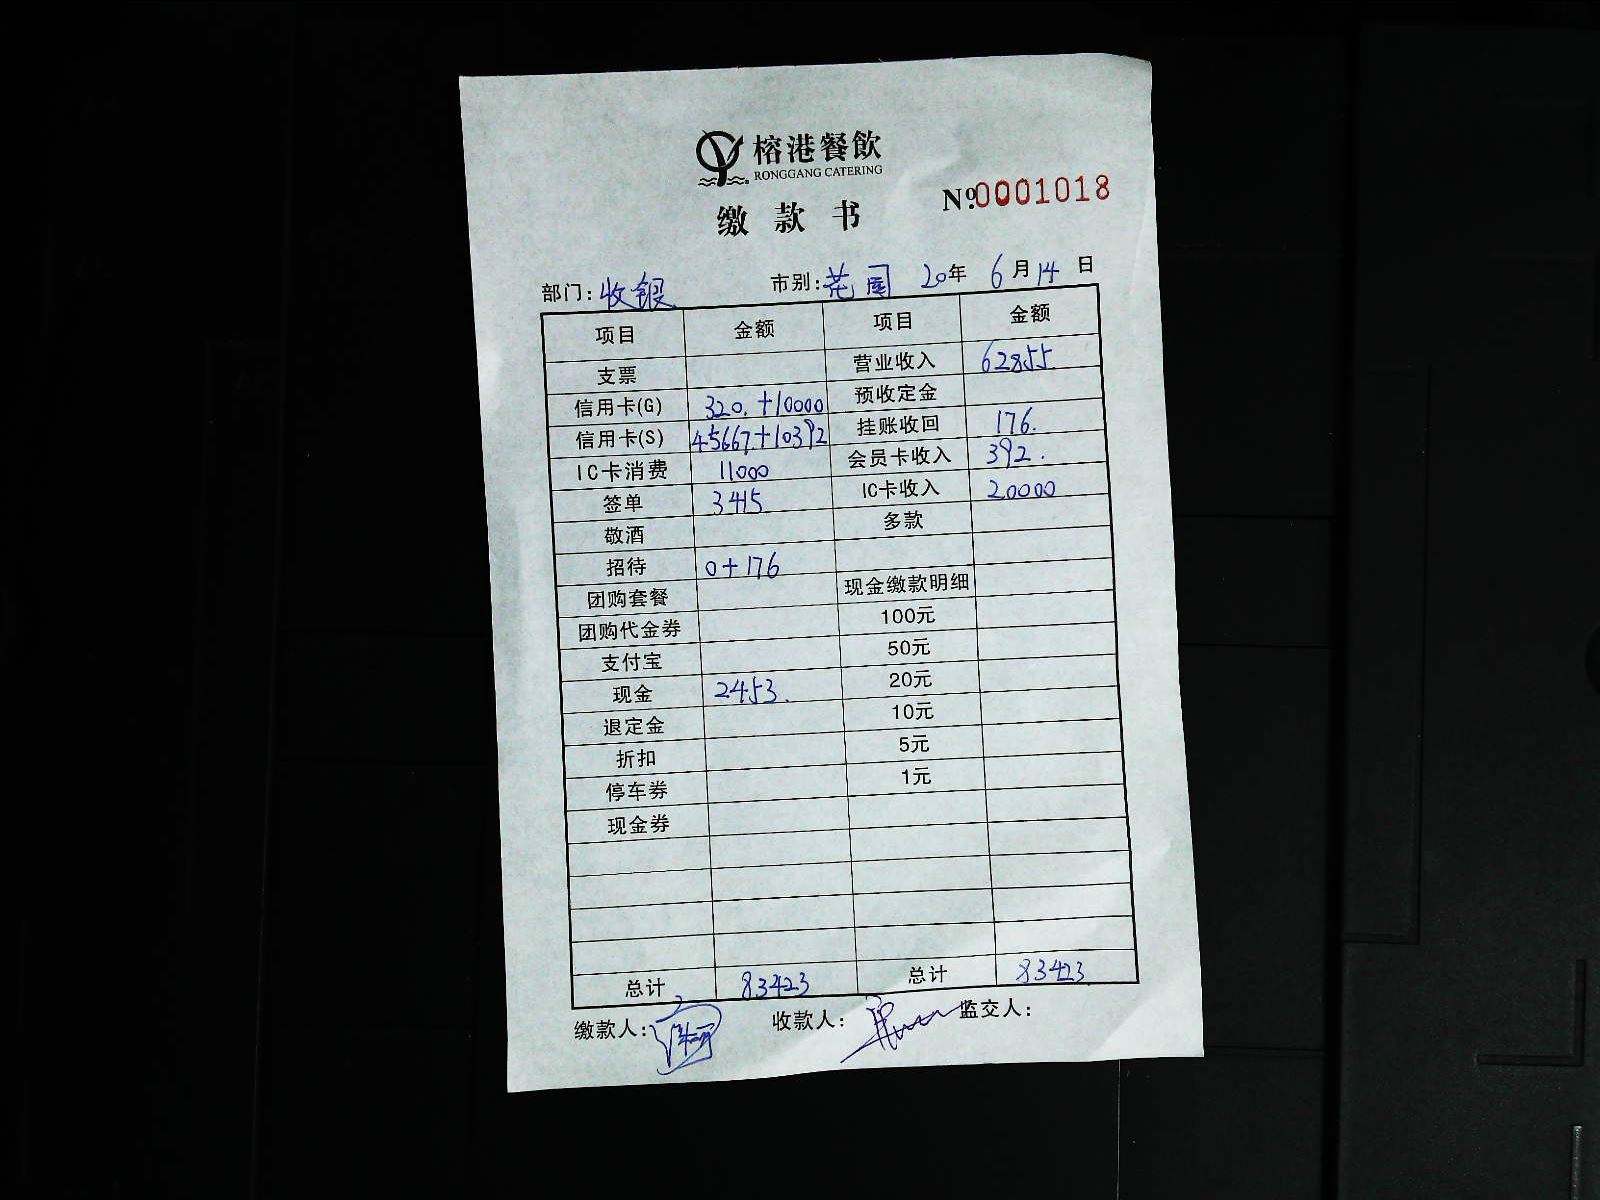 榕港餐飲
RONGGANG CATERING
缴款书 №0001018
部门:收银 市别:花园 20年6月14日
项目 金额 项目 金额
支票 营业收入 62855.
信用卡(G) 320.+10000 预收定金
信用卡(S) 45667.+10392 挂账收回 176.
IC卡消费 11000 会员卡收入 392.
签单 3415 IC卡收入 20000
敬酒 多款
招待 0+176
团购套餐 现金缴款明细
团购代金券 100元
支付宝 50元
现金 2453. 20元
退定金 10元
折扣 5元
停车券 1元
现金券
总计 83423 总计 83423
缴款人: 收款人: 监交人: